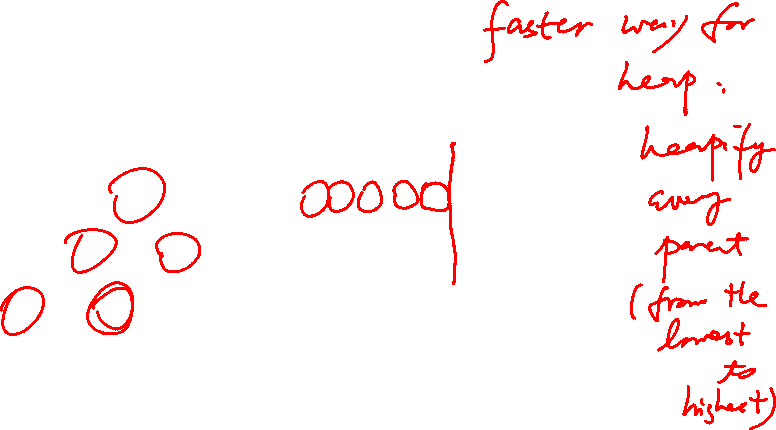 faster way for
heap :
heapify
every
parent
(from the
lowest
to
highest)